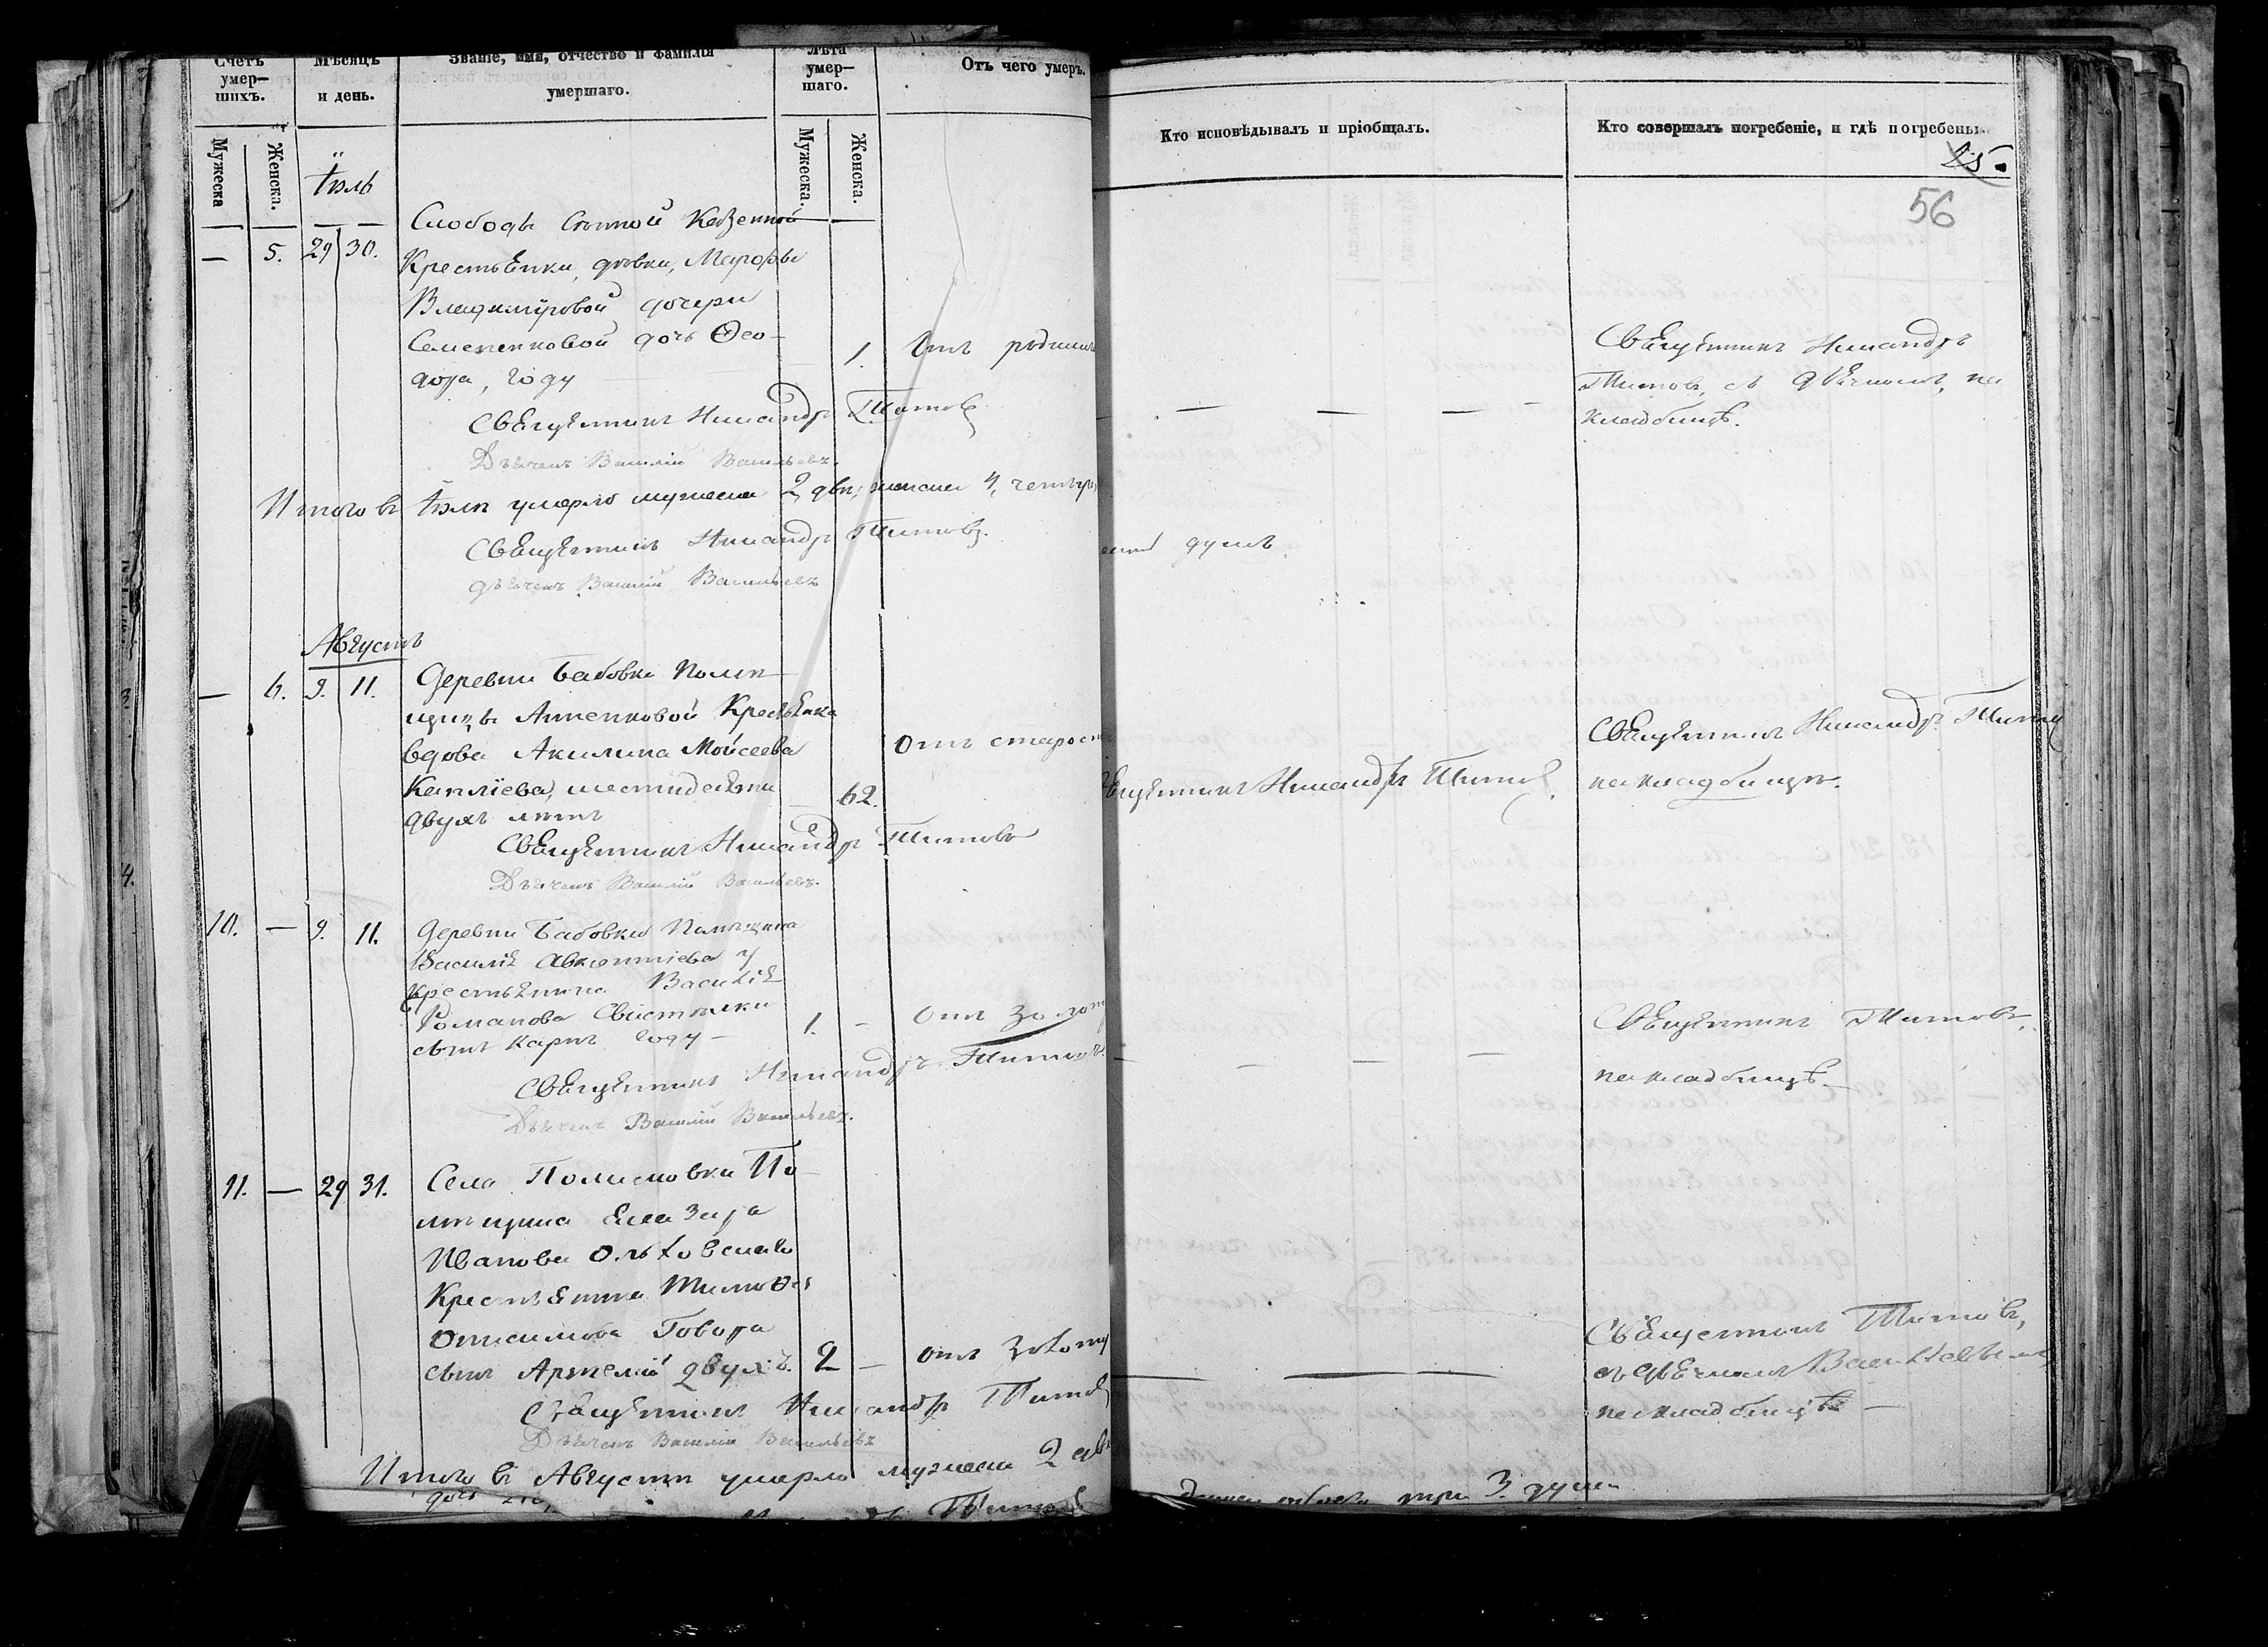 Счетъ умер— шихъ.
Мѣсяцъ и день.
Званіе, имя, отчество и фамилія умершаго.
Лѣта умер— шаго.
Отъ чего умеръ.
Мужеска
Женска.
Мужеска.
Женска.
Іюль
— 5. 29 30.
Слободы Казенной
Крестьянки, дѣвки, Марфы
Владимировой дочери
Семененковой дочь Ѳео-
дора, году
1.
Отъ родимч
Священникъ Никандръ Титовъ
Дьячекъ Василій Васильевъ.
Итого въ Іюлѣ умерло мужеска 2, два; женска 4, четыре,
Священникъ Никандръ Титовъ.
дьячекъ Василій Васильевъ
Августъ
— 6. 9. 11.
Деревни Бабовки Помѣ-
щицы Анненковой Крестьянка
вдова Акилина Моисеева
Каплиева, шестидесяти
двухъ лѣтъ
62.
Отъ старост
Священникъ Никандръ Титовъ
Дьячекъ Василій Васильевъ.
10. — 9. 11.
Деревни Бабовки Помѣщика
Василія Авксентіева
Крестьянина Василія
Романова
сынъ Карпъ году —
1. —
Отъ золот
Священникъ Никандръ Титовъ.
Дьячекъ Василій Васильевъ.
11. — 29 31.
Села По-
мѣщика Елеазара
Иванова Ольховскаго
Крестьянина Тимоѳея
Онисимова Говора
сынъ Артемій двухъ.
2 —
отъ золоту
Священникъ Никандръ Титовъ
Дьячекъ Василій Васильевъ
Итого въ Августѣ умерло мужеска 2 два
Кто исповѣдывалъ и пріобщалъ.
Кто совершалъ погребеніе, и гдѣ погребены.
56
Священникъ Никандръ
Титовъ, съ дьячкомъ, на
кладбищѣ.
душъ
Священникъ Никандръ Титовъ
на кладбищѣ.
ященникъ Никандръ Титовъ.
Священникъ Титовъ,
на кладбищѣ.
Священникъ Титовъ,
съ дьячкомъ Васильевымъ
на кладбищѣ —
три 3. души